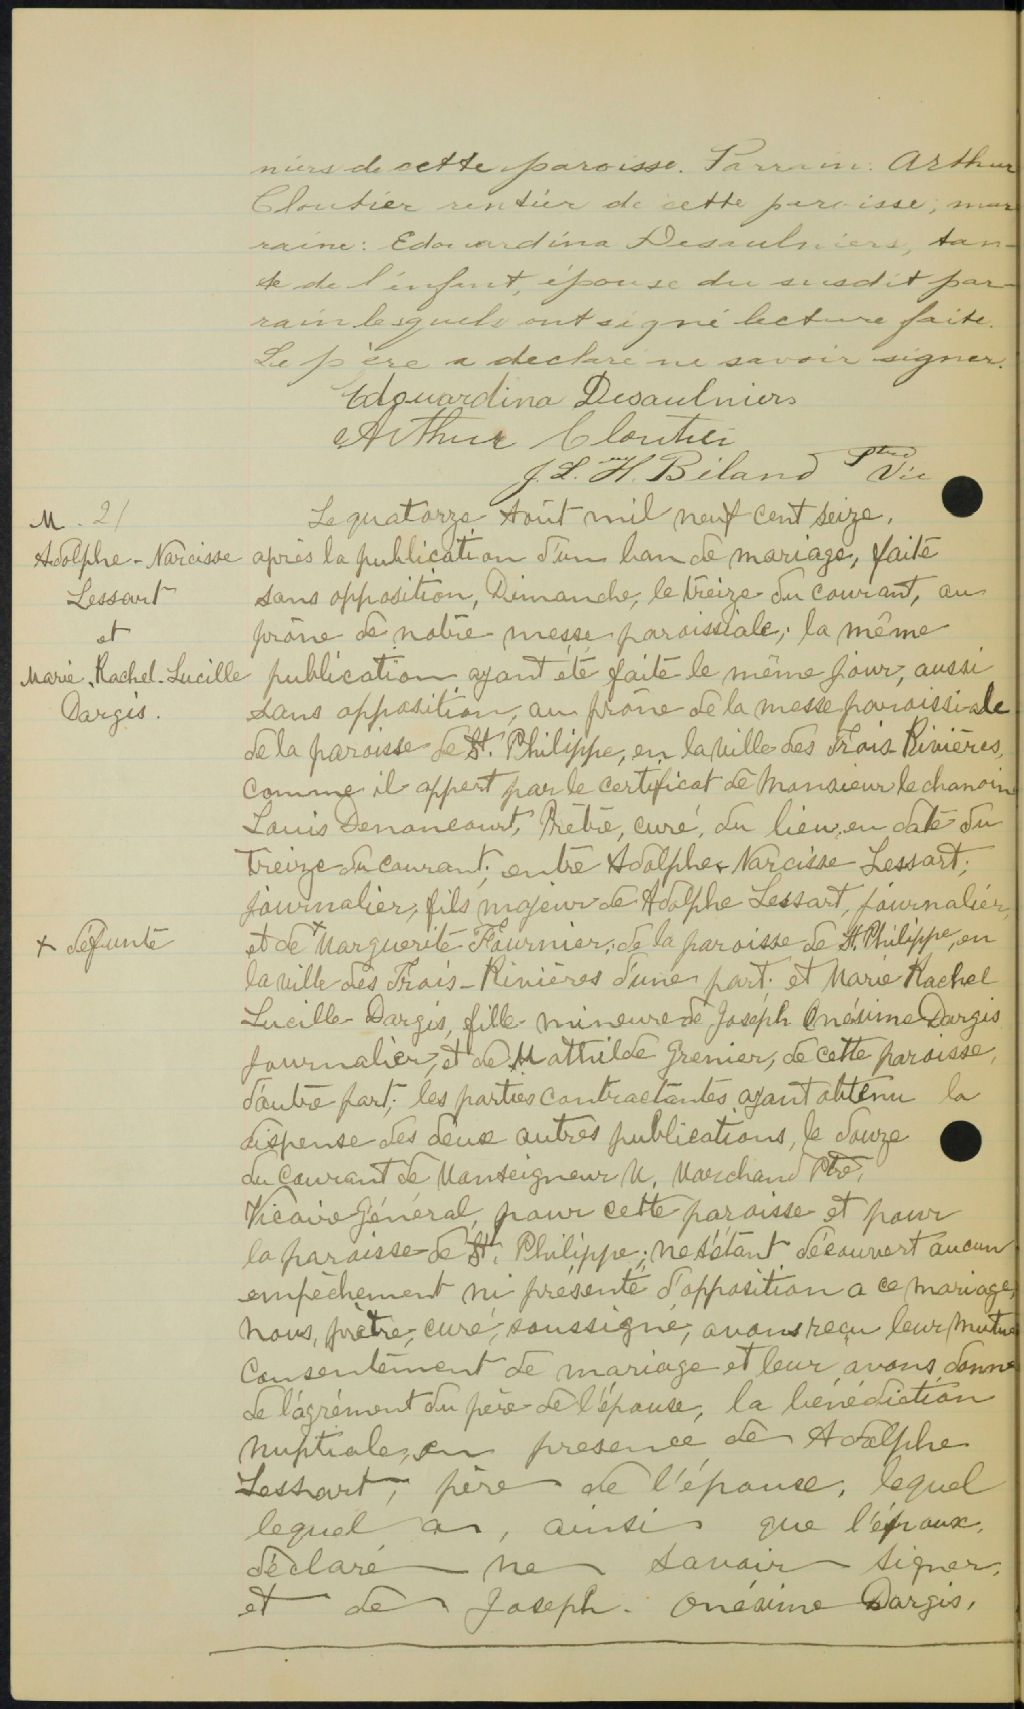 niers de cette paroisse. Parrain: Arthur
Cloutier rentier de cette paroisse; mar
raine: Edouardina Desaulniers, tan-
te de l'enfant, épouse du susdit par-
rain lesquels ont signé lecture faite.
Le père a declaré ne savoir signer.
Edouardina Desaulniers
Arthur Cloutier
J. L. H. Béland Ptre Vic
M. 21
Adolphe-Narcisse
Lessart
et
Marie, Rachel-Lucille
Dargis.
Le quatorze Août mil neuf cent seize,
après la publication d'un ban de mariage, faite
sans opposition, Dimanche, le treize du courant, au
prône de notre messe paroissiale; la même
publication ayant été faite le même jour, aussi
sans opposition, au prône de la messe paroissiale
de la paroisse de St. Philippe, en la ville des Trois Rivières,
comme il appert par le certificat de Monsieur le chanoin
Louis Denoncourt, Prêtre, curé, du lieu, en date du
treize du courant; entre Adolphe Narcisse Lessart,
journalier, fils majeur de Adolphe Lessart, journalier,
+ défunte
et de + Marguerite Fournier, de la paroisse de St. Philippe, en
la ville des Trois-Rivières d'une part; et Marie Rachel
Lucille Dargis, fille mineure de Joseph Onésime Dargis
journalier, et de Mathilde Grenier, de cette paroisse,
d'autre part; les parties contractantes ayant obtenu la
dispense des deux autres publications, le douze
du courant de Monseigneur U. Marchand Ptre,
Vicaire Général, pour cette paroisse et pour
la paroisse de St. Philippe; ne s'étant découvert aucun
empêchement ni présenté d'opposition a ce mariage,
nous, prêtre, curé, soussigné, avons reçu leur mutuel
consentement de mariage et leur avons donné
de l'agrément du père de l'épouse, la bénédiction
nuptiale, en presence de Adolphe
Lessart, père de l'épouse, lequel
lequel a, ainsi que l'époux,
déclaré ne savoir signer,
et de Joseph. Onésime Dargis,